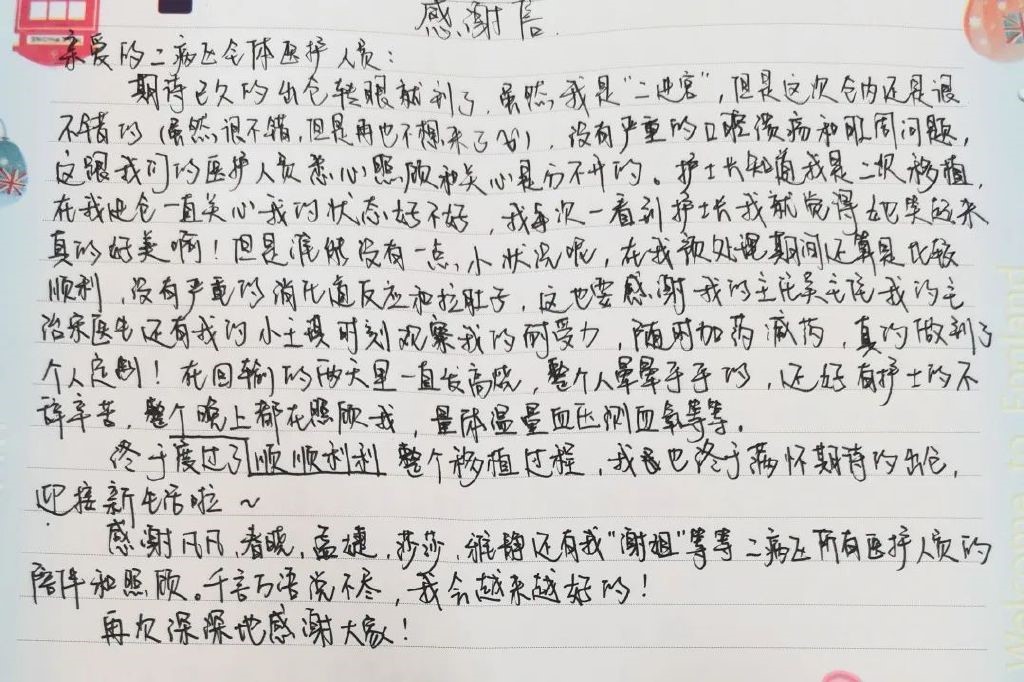 感谢信
亲爱的二病区全体医护人员：
期待已久的出仓转眼就到了，虽然我是“二进宫”，但是这次仓内还是很
不错的（虽然很不错，但是再也不想来了哈），没有严重的口腔溃疡和肛周问题，
这跟我们的医护人员悉心照顾和关心是分不开的。护士长知道我是二次移植，
在我进仓一直关心我的状态好不好，我每次一看到护士长我就觉得她笑起来
真的好美啊！但是谁能没有一点小状况呢，在我预处理期间还算是比较
顺利，没有严重的消化道反应和拉肚子，这也要感谢我的主任吴主任我的主
治宋医生还有我的小主 时刻观察我的耐受力，随时加药减药，真的做到了
个人定制！在回输的两天里一直发高烧，整个人晕晕乎乎的，还好有护士的不
辞辛苦，整个晚上都在照顾我，量体温量血压测血氧等等。
终于度过了顺顺利利整个移植过程，我也终于满怀期待的出仓，
迎接新生活啦～
感谢凡凡，春晓，孟婕，莎莎，雅静还有我“谢姐”等等二病区所有医护人员的
陪伴和照顾。千言万语说不尽，我会越来越好的！
再次深深地感谢大家！
Welcome to England